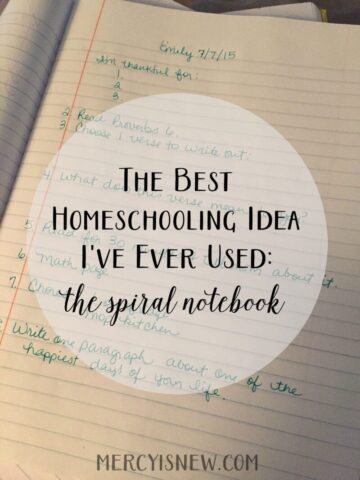 Emily 7/7/15
I'm thankful for:
1.
2
3.
2 Read Proverbs 6.
3 Choose 1 verse to write out.
4. What does this verse mean
5. Read for 30 about it.
6. Math page
7.
mop kitchen
Write one paragraph about one of the
happiest days of your life.
The Best
Homeschooling Idea
I've Ever Used:
the spiral notebook
MERCYISNEW.COM